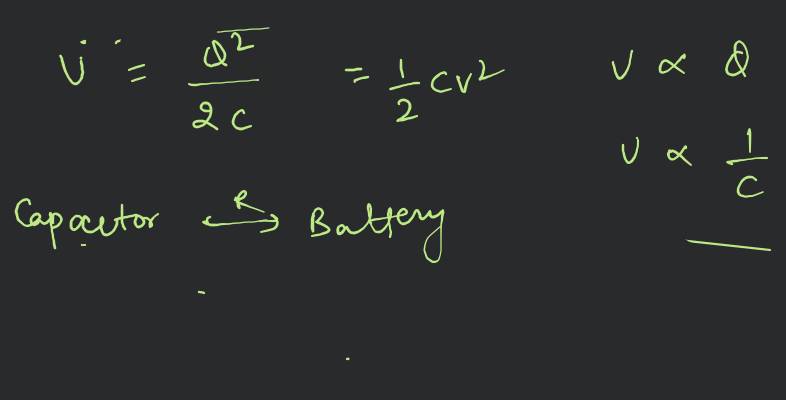 U = Q²/2C = 1/2 CV²
U ∝ Q
U ∝ 1/C
Capacitor ⟷ R Battery